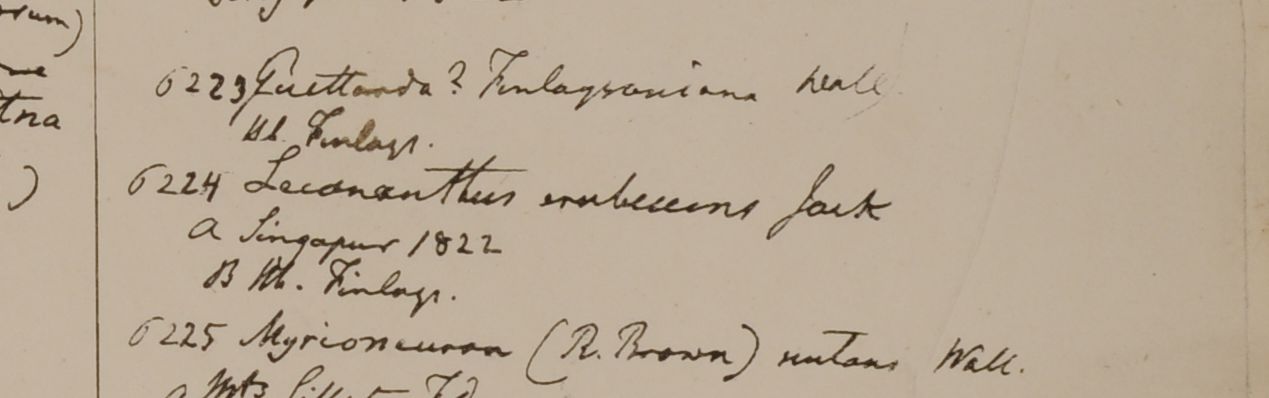 6223 Guettarda? Finlaysoniana Wall
Hb. Finlays.
6224 Lecananthus erubescens Jack
a Singapur 1822
B Hb. Finlays.
6225 Myrioneuron (R. Brown) nutans Wall.
tna